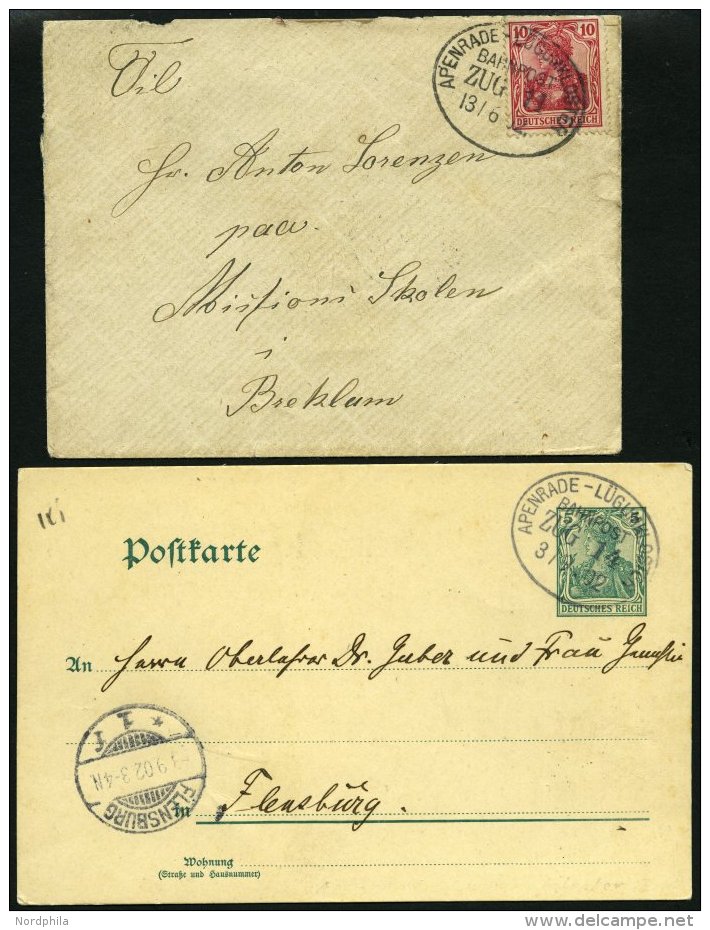 Til
Hr. Anton Lorenzen
paa
Missions Skolen
i
Breklum
APENRADE - LÜGUMKLOSTER
BAHNPOST
ZUG
13/6
10 10
DEUTSCHES REICH
Postkarte
APENRADE - LÜGUMKLOSTER
BAHNPOST
ZUG 14
3/9 02
5
DEUTSCHES REICH
An Herrn Oberlehrer Dr. Huber und Frau
FLENSBURG
9.02.3-4N.
* 1 f
in Flensburg.
Wohnung
(Straße und Hausnummer)
Nordphila
delcampe.net